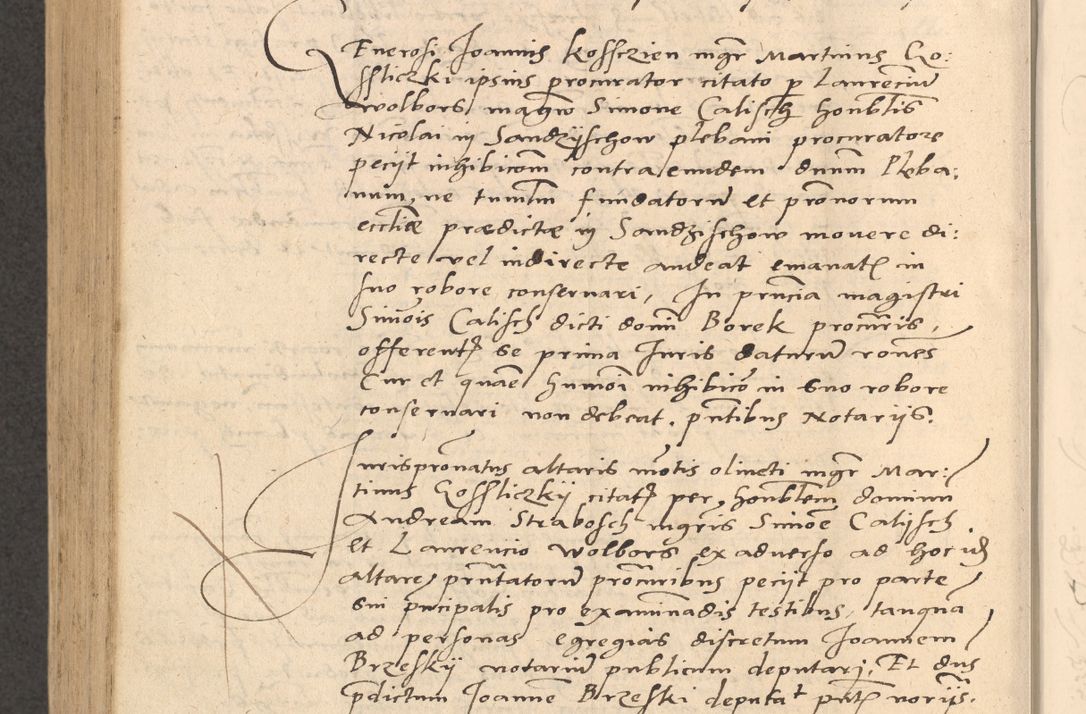 Generosi Joannis Kossczien mgr Martinus Go:
ssliczki ipsius procurator citato p Laurenciū
Wolbors magrō Simone Calisch honblis
Nicolai in Sandzÿschow plebani procuratore
peciit inhibicōm contra eundem dnum Pleba:
num, ne tumlm fundatorū et pronorum
eccliæ prædictæ in Sandzischow movere di:
recte vel indirecte audeat emanatē in
suo robore conservari, In pnncia magistri
Simōis Calisch dicti domi Borek procuris,
offerent se prima Juris daturū rones
Cur et quae humoi inhibico in suo robore
conservari non debeat. pntibus Notariis.
Jurispronatus altaris motis oliveti mgr Mar:
tinus Gossliczkÿ citat per honblem dominū
Andream Strabosch mgris Simōe Calisch
et Laurencio Wolbors ex adverso ad hoc id
altare pntatorū procuribus peciit pro parte
sui pncipalis pro examinadis testibus, tanquā
ad personas egregias discretum Joannem
Brzeskÿ notariū publicum deputari, Et dns
pdictum Joanne Brzeski deputat pntē noriis.